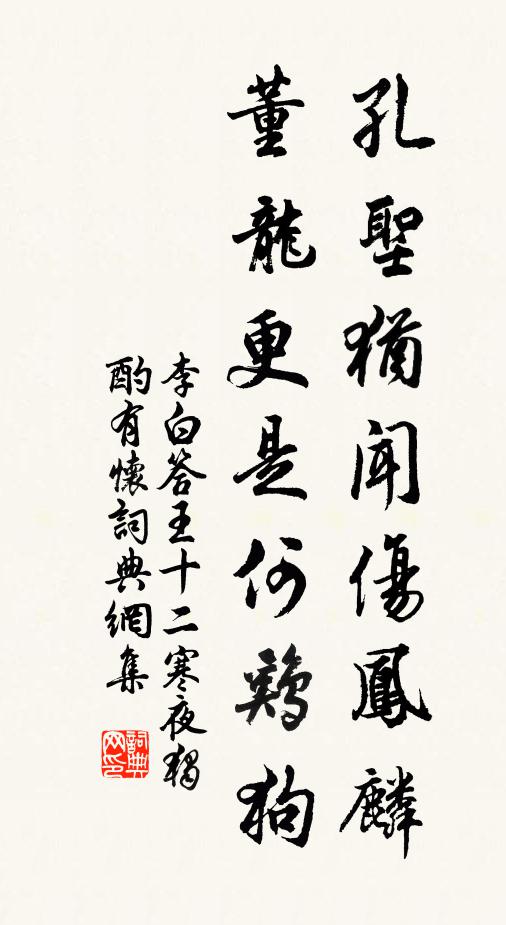 孔聖猶聞傷鳳麟
董龍更是何鷄狗
李白答王十二寒夜獨
酌有懷詞典網集
詞典
网印